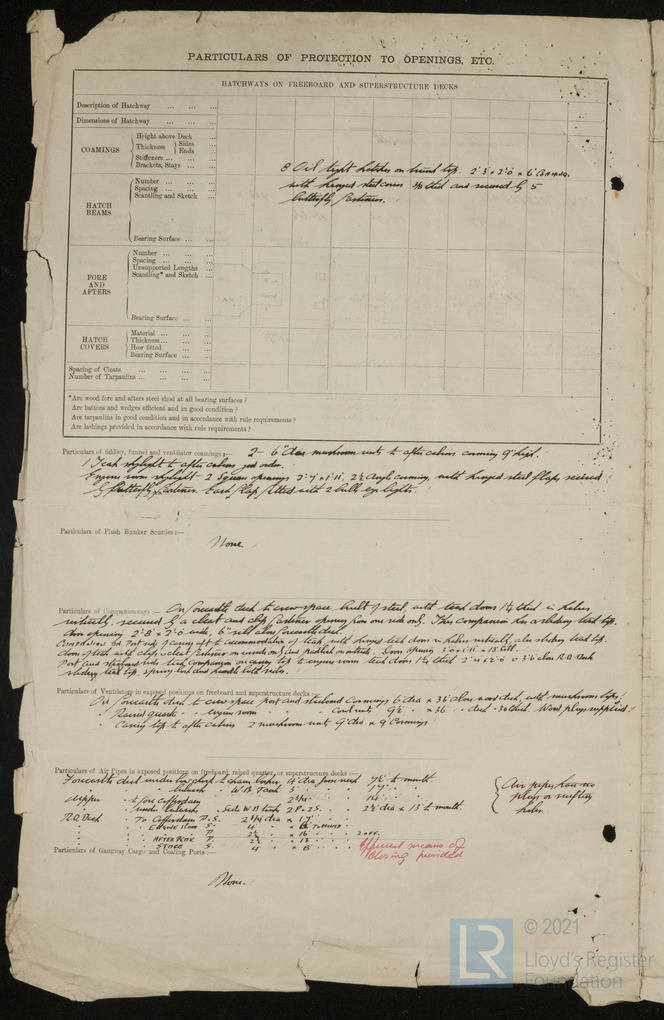 PARTICULARS OF PROTECTION TO OPENINGS, ETC.
HATCHWAYS ON FREEBOARD AND SUPERSTRUCTURE DECKS
Description of Hatchway ... ... ...
Dimensions of Hatchway ... ... ...
COAMINGS
Height above Deck ...
Thickness { Sides ...
Ends ...
Stiffeners ... ... ...
Brackets, Stays ... ...
8 Oil tight hatches on trunk top. 2'3 x 2'0 x 6"
with hinged steel covers 3/8 thick and secured by 5
butterfly fasteners.
HATCH BEAMS
Number ... ... ...
Spacing ... ... ...
Scantling and Sketch ...
Bearing Surface ... ...
FORE AND AFTERS
Number ... ... ...
Spacing ... ... ...
Unsupported Lengths ...
Scantling* and Sketch ...
Bearing Surface ... ...
HATCH COVERS
Material ... ... ...
Thickness ... ... ...
How fitted ... ...
Bearing Surface ... ...
Spacing of Cleats ... ... ...
Number of Tarpaulins ... ... ...
*Are wood fore and afters steel shod at all bearing surfaces?
Are battens and wedges efficient and in good condition?
Are tarpaulins in good condition and in accordance with rule requirements?
Are lashings provided in accordance with rule requirements?
Particulars of fiddley, funnel and ventilator coamings :— 2 - 6" dia mushroom vents to after cabins coaming 9" high.
1 Teak skylight to after cabins good order.
Engine room skylight 2 Square openings coaming, with hinged steel flaps secured
by butterfly fasteners. Each flap fitted with 2 bulls eye lights.
Particulars of Flush Bunker Scuttles :—
None.
Particulars of Companionways :— On forecastle deck to crew space built of steel, with teak doors 1¼ thick in halves
vertically secured by a cleat and clip fastener opening from one side only. This companion has a sliding teak top.
door opening 2'8" x 2'0 wide, 6" sill above forecastle deck.
Companion on Port side of casing aft to accommodation of teak, with hinged teak doors in halves vertically, also sliding teak top.
Port and starboard side teak companion on casing top to engine room teak doors 1¼ thick above R.Q. Deck
sliding teak top, spring lock and both sides.
Particulars of Ventilators in exposed positions on freeboard and superstructure decks :—
On forecastle deck to crew space port and starboard coamings 6" dia x 36" above wood deck, with mushroom tops.
" Raised quarter " " engine room " " " Cowl vents x 36 " deck .30 thick Wood plugs supplied
" Casing top to after cabins 2 mushroom vents 9" dia x 9" Coamings
Particulars of Air Pipes in exposed positions on freeboard, raised quarter, or superstructure decks :—
Forecastle deck 4" dia to mouth
W.B. Tank 5"
Upper " to fore Cofferdam 2¾
Side W.B. tank 2 P. & 2 S. 2½ dia x 13" to mouth
R.Q. Deck To Cofferdam P.S. 2¾ dia x 17"
ENGINE ROOM S. 4
AFTER PEAK P. 2½ x 13
Air pipes have no
plugs or
holes.
Efficient means of
closing provided
Particulars of Gangway Cargo and Coaling Ports :—
None.
LR
© 2021
Lloyd's Register
Foundation